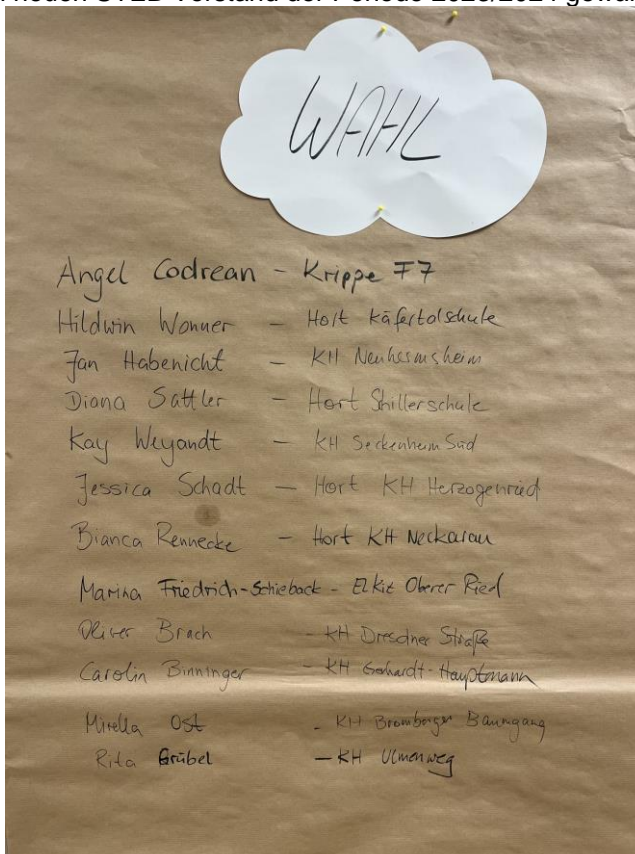 neuen STEB Vorstand der Periode 2023/2024
WAHL
Angel Codrean - Krippe F7
Hildwin Wonner - Hort Käfertalschule
Jan Habenicht - KH Neuhermsheim
Diana Sattler - Hort Shillerschule
Kay Weyandt - KH Seckenheim Süd
Jessica Schadt - Hort KH Herzogenried
Bianca Rennecke - Hort KH Neckarau
Marina Friedrich-Schieback - Elkiz Oberer Ried
Oliver Brach - KH Dresdner Straße
Carolin Binninger - KH Gerhardt-Hauptmann
Mirella Ost - KH Bromberger Baumgang
Rita Grübel - KH Ulmenweg